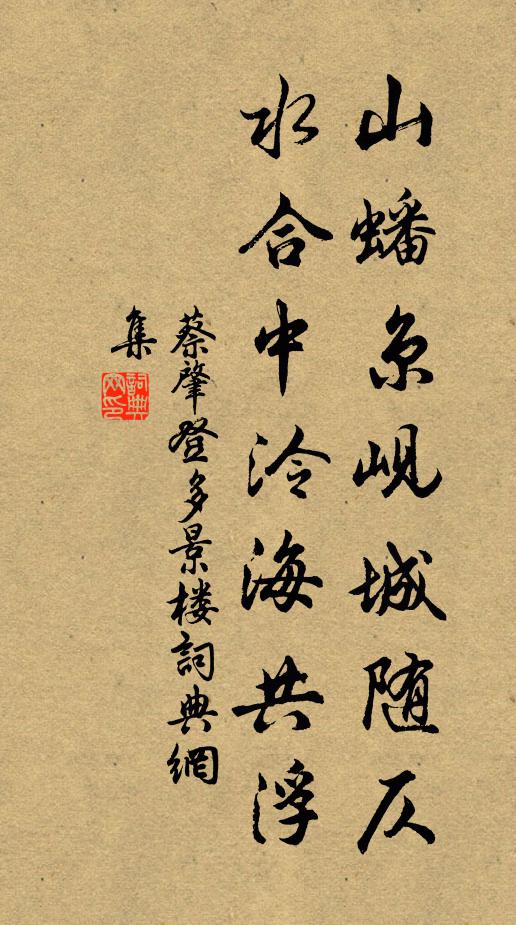 山蟠京峴城随仄
水合中泠海共浮
蔡肇登多景楼詞典網
集
詞典网印